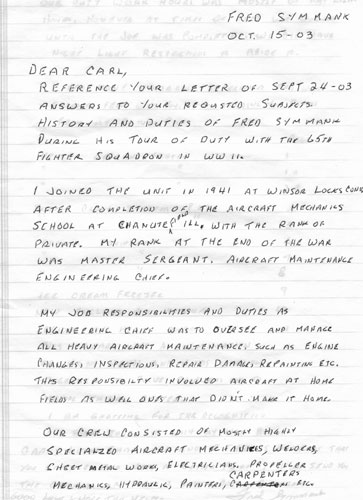 FRED SYMMANK
OCT. 15-03
DEAR CARL,
REFERENCE YOUR LETTER OF SEPT 24-03
ANSWERS TO YOUR REQUSTED SUBJECTS
HISTORY AND DUTIES OF FRED SYMMANK
DURING HIS TOUR OF DUTY WITH THE 65TH
FIGHTER SQUADRON IN WW II.
I JOINED THE UNIT IN 1941 AT WINSOR LOCKS CONN
AFTER COMPLETION OF THE AIRCRAFT MECHANICS
SCHOOL AT CHANUTE ILL. WITH THE RANK OF
PRIVATE. MY RANK AT THE END OF THE WAR
WAS MASTER SERGEANT. AIRCRAFT MAINTENANCE
ENGINEERING CHIEF.
MY JOB RESPONSIBILITIES AND DUTIES AS
ENGINEERING CHIEF WAS TO OVERSEE AND MANAGE
ALL HEAVY AIRCRAFT MAINTENANCE, SUCH AS ENGINE
CHANGES, INSPECTIONS, REPAIR DAMAGE, REPAINTING ETC.
THIS RESPONSIBILTY INVOLVED AIRCRAFT AT HOME
FIELDS AS WELL ONES THAT DIDN'T MAKE IT HOME.
OUR CREW CONSISTED OF MOSTLY HIGHLY
SPECIALIZED AIRCRAFT MECHANICS, WELDERS,
SHEET METAL WORKS, ELECTRICIANS, PROPELLER
MECHANICS, HYDRAULIC, PAINTERS, CARPENTERS ETC.